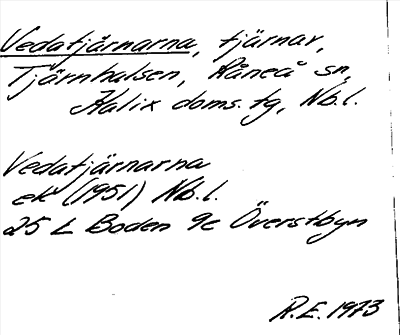 Vedatjärnarna, tjärnar,
Tjärnhalsen, Råneå sn,
Kalix doms. tg, Nb.l.
Vedatjärnarna
ek (1951) Nb.l.
25 L Boden 9c Överstbyn
R.E. 1973